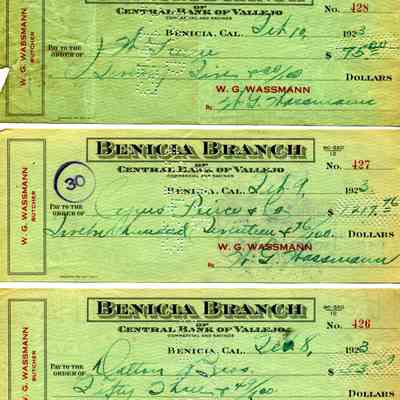 BENICIA BRANCH
OF
CENTRAL BANK OF VALLEJO
COMMERCIAL AND SAVINGS
No. 428
BENICIA, CAL. Feb 10, 1923
PAY TO THE
ORDER OF
$ 75.00
Seventy Five & 00/100
DOLLARS
W. G. WASSMANN
By W. G. Wassmann
W. G. WASSMANN
BUTCHER
BENICIA BRANCH
OF
CENTRAL BANK OF VALLEJO
COMMERCIAL AND SAVINGS
No. 427
30
BENICIA, CAL. Feb 9, 1923
PAY TO THE
ORDER OF
Cyrus Pierce & Co
$ 1217.76
Twelve Hundred Seventeen & 76/100
DOLLARS
W. G. WASSMANN
By W. G. Wassmann
W. G. WASSMANN
BUTCHER
BENICIA BRANCH
OF
CENTRAL BANK OF VALLEJO
COMMERCIAL AND SAVINGS
No. 426
BENICIA, CAL. Feb 8, 1923
PAY TO THE
ORDER OF
Bros.
$
Fifty Three &
DOLLARS
W. G. WASSMANN
BUTCHER